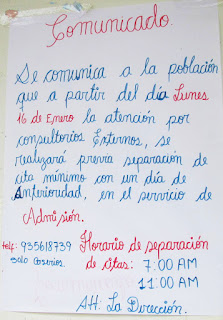 Comunicado.
Se comunica a la población
que a partir del día Lunes
16 de Enero la atención por
consultorios Externos, se
realizará previa separación de
cita mínimo con un día de
Anterioridad, en el servicio de
Admisión.
telf: 935618739 Horario de separación
solo Caserios. de Citas: 7:00 AM
11:00 AM
Att. La Dirección.